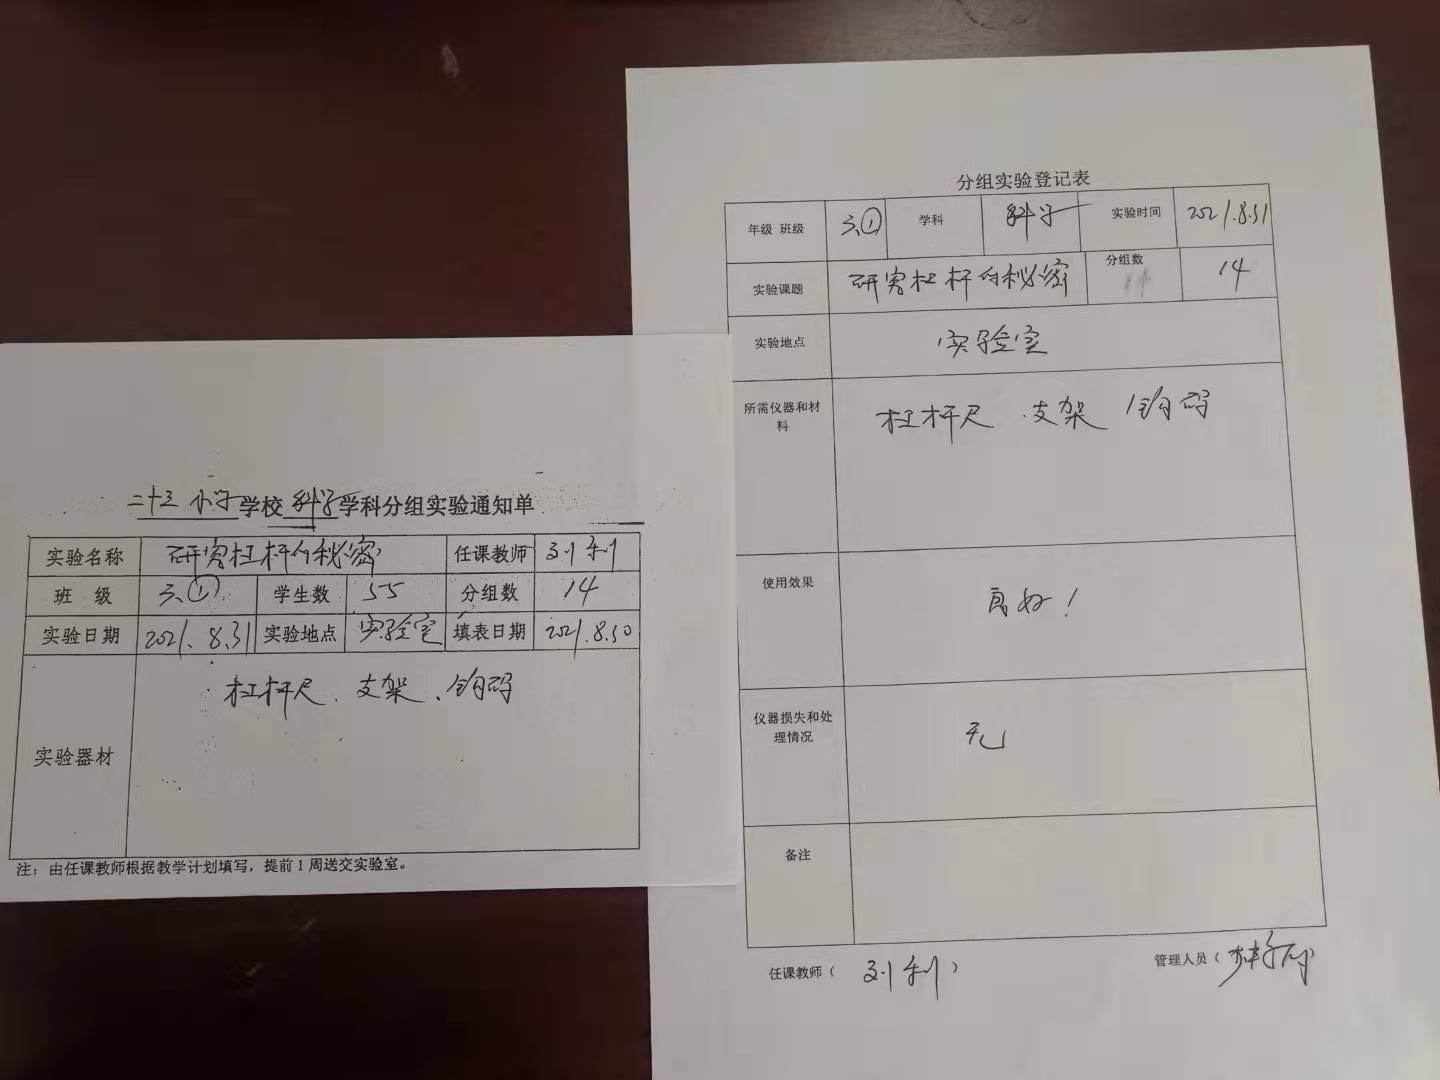 二十三小学学校科学学科分组实验通知单
实验名称 研究杠杆的秘密 任课教师 刘利
班 级 六① 学生数 55 分组数 14
实验日期 2021.8.31 实验地点 实验室 填表日期 2021.8.30
实验器材 杠杆尺、支架、钩码
注：由任课教师根据教学计划填写，提前1周送交实验室。
分组实验登记表
年级 班级 六① 学科 科学 实验时间 2021.8.31
实验课题 研究杠杆的秘密 分组数 14
实验地点 实验室
所需仪器和材
料
杠杆尺 支架 钩码
使用效果 良好！
仪器损失和处
理情况
无
备注
任课教师（ 刘利 ） 管理人员（